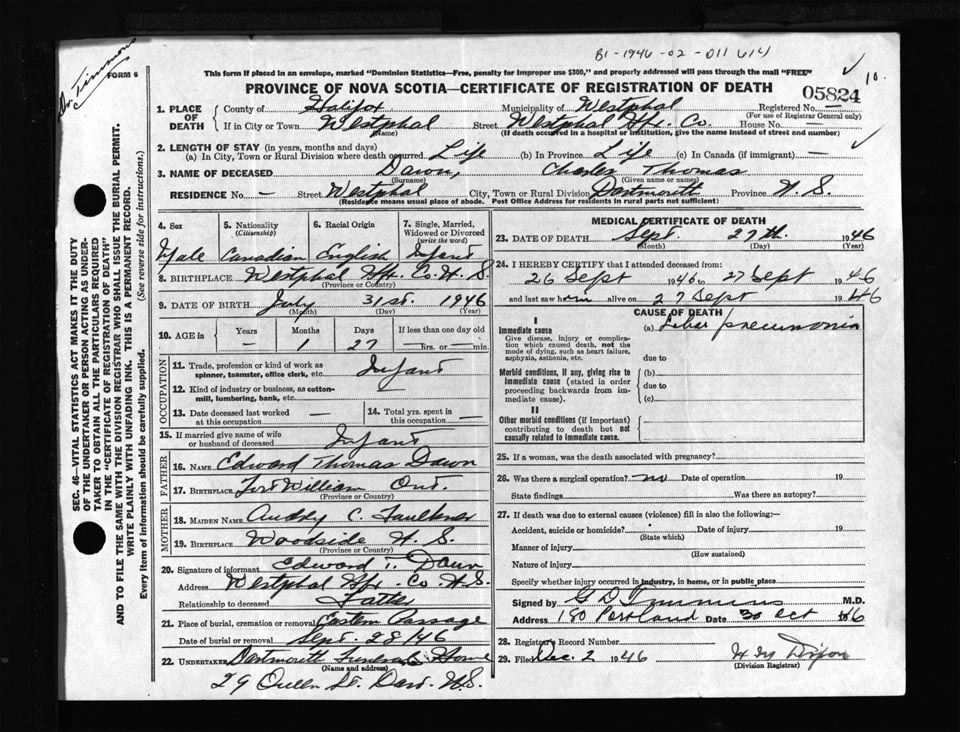 B1-1946-02-011614
Dr Timmons
FORM 6
This form if placed in an envelope, marked "Dominion Statistics—Free, penalty for improper use $300," and properly addressed will pass through the mail "FREE"
10.
PROVINCE OF NOVA SCOTIA—CERTIFICATE OF REGISTRATION OF DEATH
05824
1. PLACE OF DEATH
County of Halifax Municipality of Westphal Registered No. —
(For use of Registrar General only)
If in City or Town Westphal Street Westphal Hfx. Co. House No. —
(Name) (If death occurred in a hospital or institution, give the name instead of street and number)
2. LENGTH OF STAY (in years, months and days)
(a) In City, Town or Rural Division where death occurred. Life (b) In Province Life (c) In Canada (if immigrant) —
3. NAME OF DECEASED Dawn, Charles Thomas
(Surname) (Given name or names)
RESIDENCE No. — Street Westphal City, Town or Rural Division Dartmouth Province N. S.
(Residence means usual place of abode. Post Office Address for residents in rural parts not sufficient)
SEC. 46—VITAL STATISTICS ACT MAKES IT THE DUTY
OF THE UNDERTAKER OR PERSON ACTING AS UNDER-
TAKER TO OBTAIN ALL THE PARTICULARS REQUIRED
IN THE "CERTIFICATE OF REGISTRATION OF DEATH"
AND TO FILE THE SAME WITH THE DIVISION REGISTRAR WHO SHALL ISSUE THE BURIAL PERMIT.
WRITE PLAINLY WITH UNFADING INK. THIS IS A PERMANENT RECORD.
Every item of information should be carefully supplied. (See reverse side for instructions.)
4. Sex 5. Nationality (Citizenship) 6. Racial Origin 7. Single, Married, Widowed or Divorced (write the word)
Male Canadian English Infant
8. BIRTHPLACE Westphal Hfx. Co. N. S.
(Province or Country)
9. DATE OF BIRTH July 31st. 1946
(Month) (Day) (Year)
10. AGE in Years Months Days If less than one day old
— 1 27 — hrs. or — min.
OCCUPATION
11. Trade, profession or kind of work as spinner, teamster, office clerk, etc. Infant
12. Kind of industry or business, as cotton-mill, lumbering, bank, etc. —
13. Date deceased last worked at this occupation — 14. Total yrs. spent in this occupation —
15. If married give name of wife or husband of deceased Infant
FATHER
16. NAME Edward Thomas Dawn
17. BIRTHPLACE Fort William Ont.
(Province or Country)
MOTHER
18. MAIDEN NAME Audry C. Faulkner
19. BIRTHPLACE Woodside N. S.
(Province or Country)
20. Signature of informant Edward T. Dawn
Address Westphal Hfx. Co. N. S.
Relationship to deceased Father
21. Place of burial, cremation or removal Eastern Passage
Date of burial or removal Sept. 28/46
22. UNDERTAKER Dartmouth Funeral Home
(Name and address)
29 Queen St. Dart. N.S.
MEDICAL CERTIFICATE OF DEATH
23. DATE OF DEATH Sept. 27th. 1946
(Month) (Day) (Year)
24. I HEREBY CERTIFY that I attended deceased from:
26 Sept 1946 to 27 Sept 1946
and last saw him alive on 27 Sept 1946
CAUSE OF DEATH
I
Immediate cause (a) Lobar pneumonia
Give disease, injury or complica-
tion which caused death, not the
mode of dying, such as heart failure,
asphyxia, asthenia, etc. due to
Morbid conditions, if any, giving rise to (b)
immediate cause (stated in order due to
proceeding backwards from im-
mediate cause). (c)
II
Other morbid conditions (if important)
contributing to death but not
causally related to immediate cause.
25. If a woman, was the death associated with pregnancy?
26. Was there a surgical operation? no Date of operation 19
State findings Was there an autopsy?
27. If death was due to external causes (violence) fill in also the following:—
Accident, suicide or homicide? Date of injury 19
(State which)
Manner of injury
(How sustained)
Nature of injury
Specify whether injury occurred in industry, in home, or in public place
Signed by G D Timmins M.D.
Address 180 Portland Date 30 Oct 46
28. Registrar's Record Number
29. Filed Dec. 2 1946
(Division Registrar)